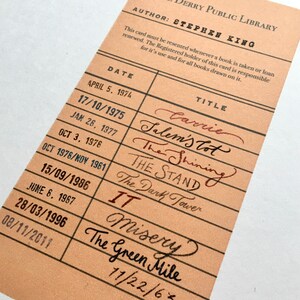 Derry Public Library
AUTHOR: STEPHEN KING
This card must be renewed whenever a book is taken or loan
renewed. The Registered holder of this card is responsible
for it's use and for all books drawn on it.
DATE TITLE
APRIL 5, 1974 Carrie
17/10/1975 'Salem's Lot
JAN 28, 1977 The Shining
OCT 3, 1978 THE STAND
OCT 1978/NOV 1981 The Dark Tower
15/09/1986 IT
JUNE 8, 1987 Misery
28/03/1996 The Green Mile
08/11/2011 11/22/6*